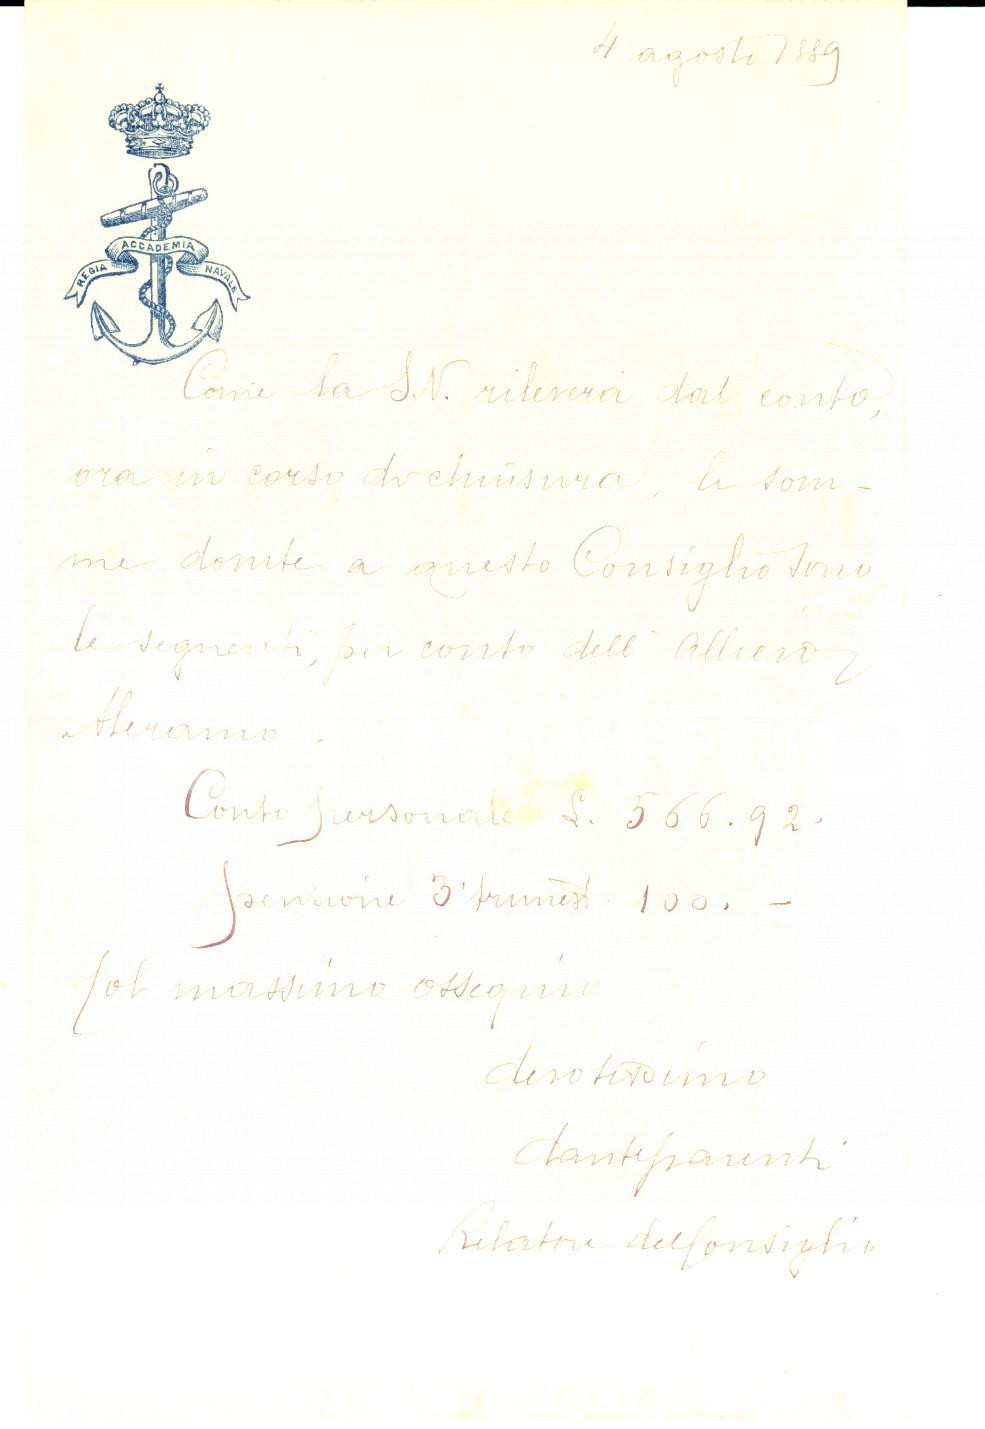 4 agosto 1889
REGIA ACCADEMIA NAVALE
Come la S.V. rileverà dal conto,
ora in corso di chiusura, le som-
me dovute a questo Consiglio sono
le seguenti, per conto dell' Allievo
Aleramo.
Conto personale L. 566.92.
pensione 3° trimest. 100. -
Col massimo ossequio
devotissimo
Dante Parenti
Relatore del Consiglio